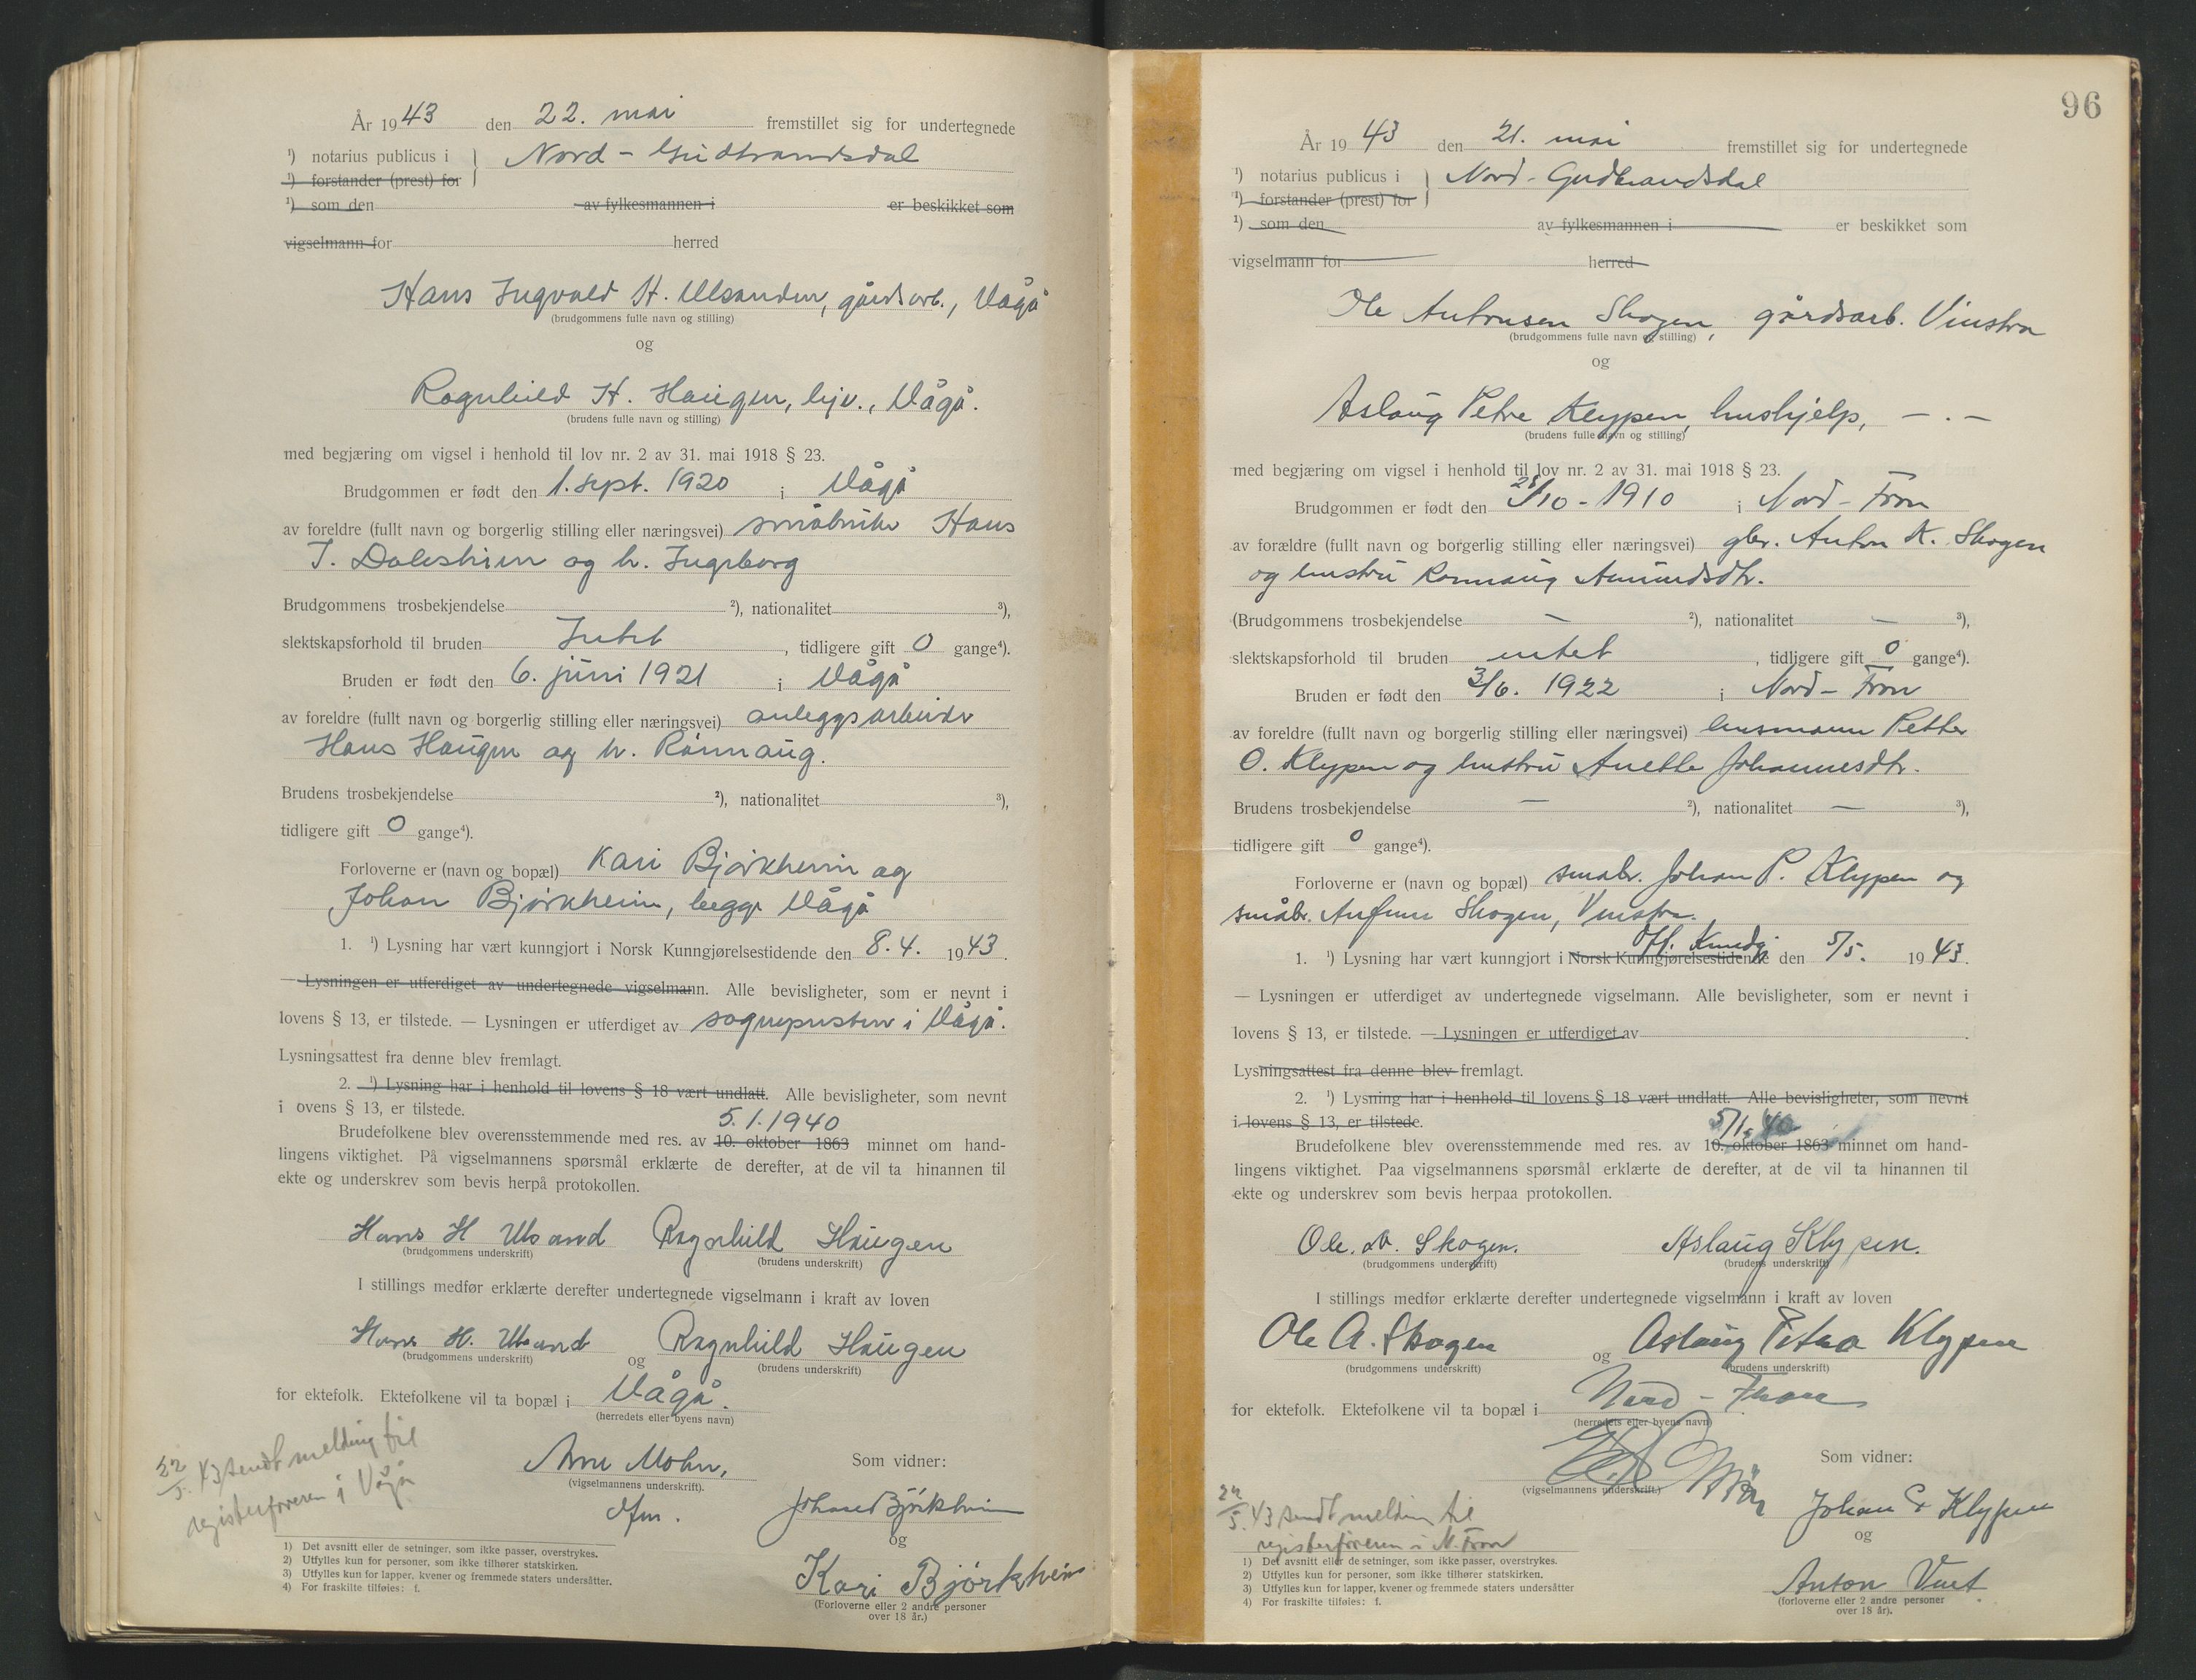 År 1943 den 22. mai fremstillet sig for undertegnede
¹) notarius publicus i } Nord - Gudbrandsdal
¹) forstander (prest) for
¹) som den av fylkesmannen i er beskikket som
vigselmann for herred
Hans Ingvald H. Ulsanden, gårdsarb., Vågå
(brudgommens fulle navn og stilling)
og
Ragnhild H. Haugen, hjv., Vågå.
(brudens fulle navn og stilling)
med begjæring om vigsel i henhold til lov nr. 2 av 31. mai 1918 § 23.
Brudgommen er født den 1. sept. 1920 i Vågå
av foreldre (fullt navn og borgerlig stilling eller næringsvei) småbruker Hans
I. Dalesheim og h. Ingeborg
Brudgommens trosbekjendelse ²), nationalitet ³),
slektskapsforhold til bruden Intet , tidligere gift 0 gange⁴).
Bruden er født den 6. juni 1921 i Vågå
av foreldre (fullt navn og borgerlig stilling eller næringsvei) anleggsarbeider
Hans Haugen og h. Rønnaug.
Brudens trosbekjendelse ²), nationalitet ³),
tidligere gift 0 gange⁴).
Forloverne er (navn og bopæl) Kari Bjørkheim og
Johan Bjørkheim, begge Vågå
1. ¹) Lysning har vært kunngjort i Norsk Kunngjørelsestidende den 8.4. 1943.
— Lysningen er utferdiget av undertegnede vigselmann. Alle bevisligheter, som er nevnt i
lovens § 13, er tilstede. — Lysningen er utferdiget av sogneprsten i Vågå.
Lysningsattest fra denne blev fremlagt.
2. ¹) Lysning har i henhold til lovens § 18 vært undlatt. Alle bevisligheter, som nevnt
i ovens § 13, er tilstede.
5.1.1940
Brudefolkene blev overensstemmende med res. av 10. oktober 1863 minnet om hand-
lingens viktighet. På vigselmannens spørsmål erklærte de derefter, at de vil ta hinannen til
ekte og underskrev som bevis herpå protokollen.
Hans H Ulsand Ragnhild Haugen
(brudgommens underskrift) (brudens underskrift)
I stillings medfør erklærte derefter undertegnede vigselmann i kraft av loven
Hans H. Ulsand og Ragnhild Haugen
(brudgommens underskrift) (brudens underskrift)
for ektefolk. Ektefolkene vil ta bopæl i Vågå.
(herredets eller byens navn)
22/5. 43 sendt melding til
registerføreren i Vågå
Arne Mohn, Som vidner:
(vigselmannens underskrift).
Johan Bjørkheim
og
Kari Bjørkheim
(Forloverne eller 2 andre personer
over 18 år.)
1) Det avsnitt eller de setninger, som ikke passer, overstrykes.
2) Utfylles kun for personer, som ikke tilhører statskirken.
3) Utfylles kun for lapper, kvener og fremmede staters undersåtter.
4) For fraskilte tilføies: f.
96
År 1943 den 21. mai fremstillet sig for undertegnede
¹) notarius publicus i } Nord - Gudbrandsdal
¹) forstander (prest) for
¹) som den av fylkesmannen i er beskikket som
vigselmann for herred
Ole Antonsen Skogen, gårdsarb. Vinstra
(brudgommens fulle navn og stilling)
og
Aslaug Petra Klypen, hushjelp, — . —
(brudens fulle navn og stilling)
med begjæring om vigsel i henhold til lov nr. 2 av 31. mai 1918 § 23.
Brudgommen er født den /10 - 1910 i Nord - Fron
av forældre (fullt navn og borgerlig stilling eller næringsvei) gbr. Anton K. Skogen
og hustru Rønnaug Amundsdtr.
(Brudgommens trosbekjendelse — ²), nationalitet — ³),
slektskapsforhold til bruden intet , tidligere gift 0 gange⁴).
Bruden er født den 3/6. 1922 i Nord - Fron
av foreldre (fullt navn og borgerlig stilling eller næringsvei) husmann Petter
O. Klypen og hustru Anette Johannesdtr.
Brudens trosbekjendelse — ²), nationalitet — ³),
tidligere gift 0 gange⁴).
Forloverne er (navn og bopæl) småbr. Johan P. Klypen og
småbr. Skogen, Vinstra.
Off. Kundg.
1. ¹) Lysning har vært kunngjort i Norsk Kunngjørelsestidende den 5/5. 1943.
— Lysningen er utferdiget av undertegnede vigselmann. Alle bevisligheter, som er nevnt i
lovens § 13, er tilstede. — Lysningen er utferdiget av
Lysningsattest fra denne blev fremlagt.
2. ¹) Lysning har i henhold til lovens § 18 vært undlatt. Alle bevisligheter, som nevnt
i lovens § 13, er tilstede.
5/1. 40
Brudefolkene blev overensstemmende med res. av 10. oktober 1863 minnet om hand-
lingens viktighet. Paa vigselmannens spørsmål erklærte de derefter, at de vil ta hinannen til
ekte og underskrev som bevis herpaa protokollen.
Ole. A. Skogen. Aslaug Klypen.
(brudgommens underskrift) (brudens underskrift)
I stillings medfør erklærte derefter undertegnede vigselmann i kraft av loven
Ole A. Skogen og Aslaug Petra Klypen
(brudgommens underskrift) (brudens underskrift)
for ektefolk. Ektefolkene vil ta bopæl i Nord - Fron
(herredets eller byens navn)
Som vidner:
(vigselmannens underskrift.)
22/5. 43 sendt melding til
registerføreren i N. Fron
Johan P Klypen
og
Anton
(forloverne eller 2 andre personer
over 18 år).
1) Det avsnitt eller de setninger, som ikke passer, overstrykes.
2) Utfylles kun for personer, som ikke tilhører statskirken.
3) Utfylles kun for lapper, kvener og fremmede staters undersåtter
4) For fraskilte tilføies: f.